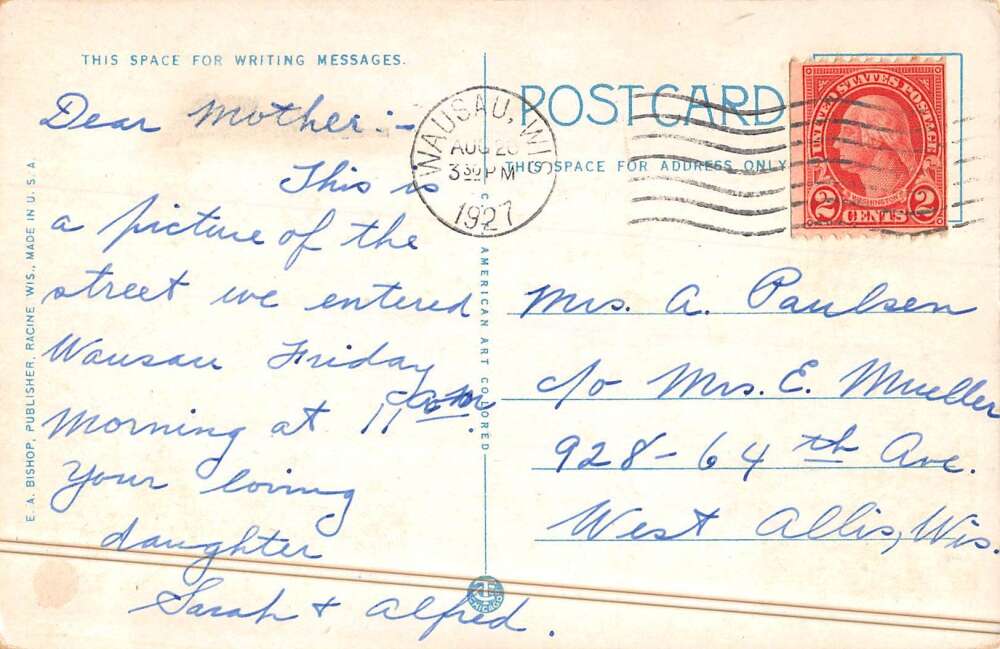 THIS SPACE FOR WRITING MESSAGES.
Dear Mother:-
This is
a picture of the
street we entered
Wausau Friday
Morning at 11 a.m.
Your loving
daughter
Sarah & Alfred.
E. A. BISHOP, PUBLISHER, RACINE WIS., MADE IN U.S.A.
AMERICAN ART COLORED
POST CARD
THIS SPACE FOR ADDRESS ONLY
WAUSAU, WIS
AUG
3 30 PM
1927
UNITED STATES POSTAGE
WASHINGTON
2 CENTS 2
Mrs. A. Paulsen
c/o Mrs. E. Mueller
928-64th Ave.
West Allis, Wis.
CHICAGO